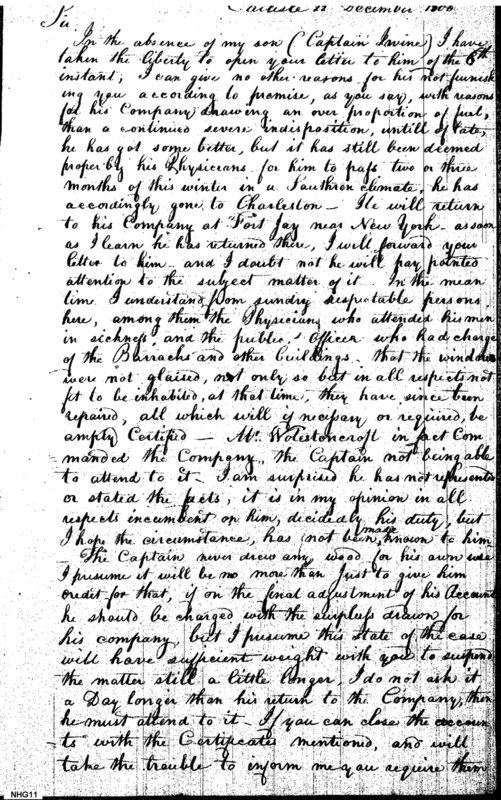 Carlisle 22 December 1800
Sir
In the absence of my son (Captain Irvine) I have
taken the liberty to open your letter to him of the 6th
instant; I can give no other reasons for his not furnish
ing you according to promise, as you say, with reasons
for his Company drawing an over proportion of fuel,
than a continued severe indisposition, untill of late,
he has got some better, but it has still been deemed
proper by his Physicians for him to pass two or three
months of this winter in a Southren climate, he has
accordingly gone to Charleston – He will return
to his Company at Fort Jay near New York – as soon
as I learn he has returned there, I will forward your
letter to him – and I doubt not he will pay pointed
attention to the subject matter of it – In the mean
time I understand from sundry respectable persons
here, among them the Physician, who attended his men
in sickness, and the public Officer who had charge
of the Barracks and other buildings – that the windows
were not glaised, not only so but in all respects not
fit to be inhabited, at that time, they have since been
repaired, all which will if necessary or required, be
amply Certified – Mr. Wolestoncroft in fact Com
manded the Company, the Captain not being able
to attend to it – I am surprised he has not represented
or stated the facts, it is in my opinion in all
respects incumbent on him, decidedly his duty, but
I hope the circumstance, has not been made known to him
– The Captain never drew any wood for his own use
I presume it will be no more than Just to give him
credit for that, if on the final adjustment of his Account
he should be charged with the surpluss drawn for
his company, but I presume this state of the case
will have sufficient weight with you to suspend
the matter still a little longer, I do not ask it
a Day longer than his return to the Company, then
he must attend to it – If you can close the accoun
ts with the Certificates mentioned, and will
take the trouble to inform me you require them
NHG11